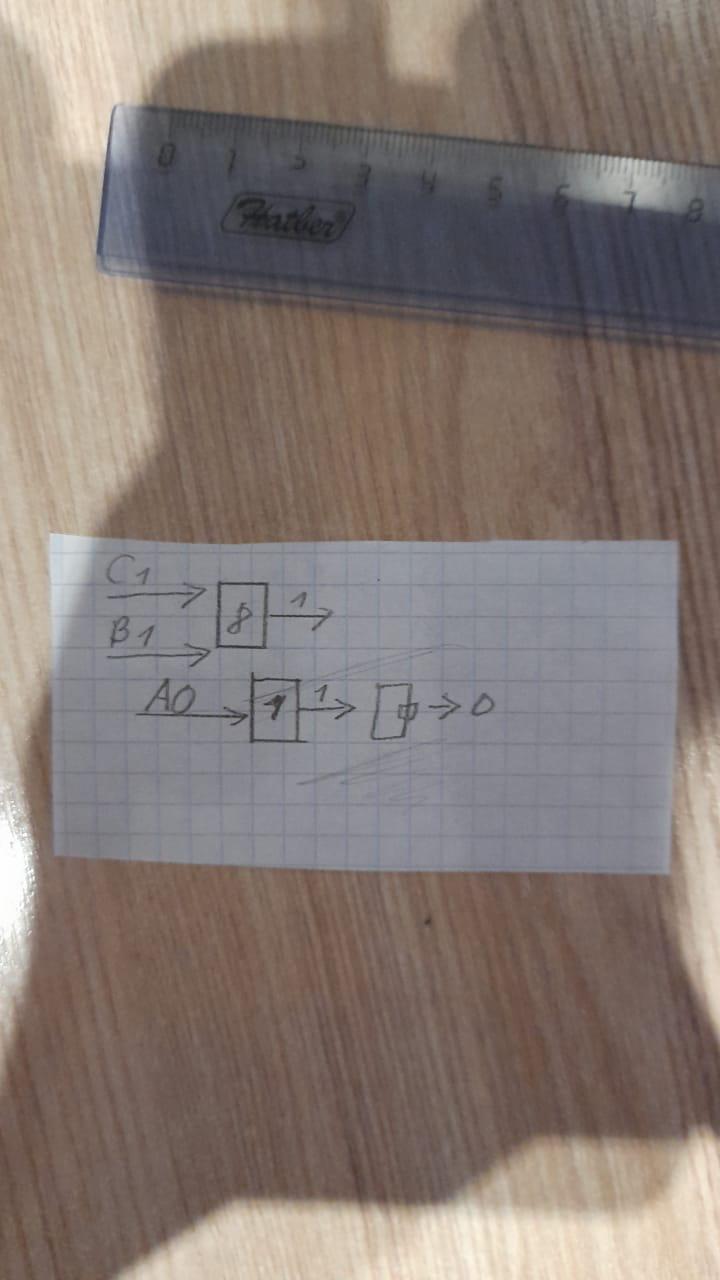 0 1 2 3 4 5 6 7 8
Hatber®
C1
8 1
B1
A0 1 1 0